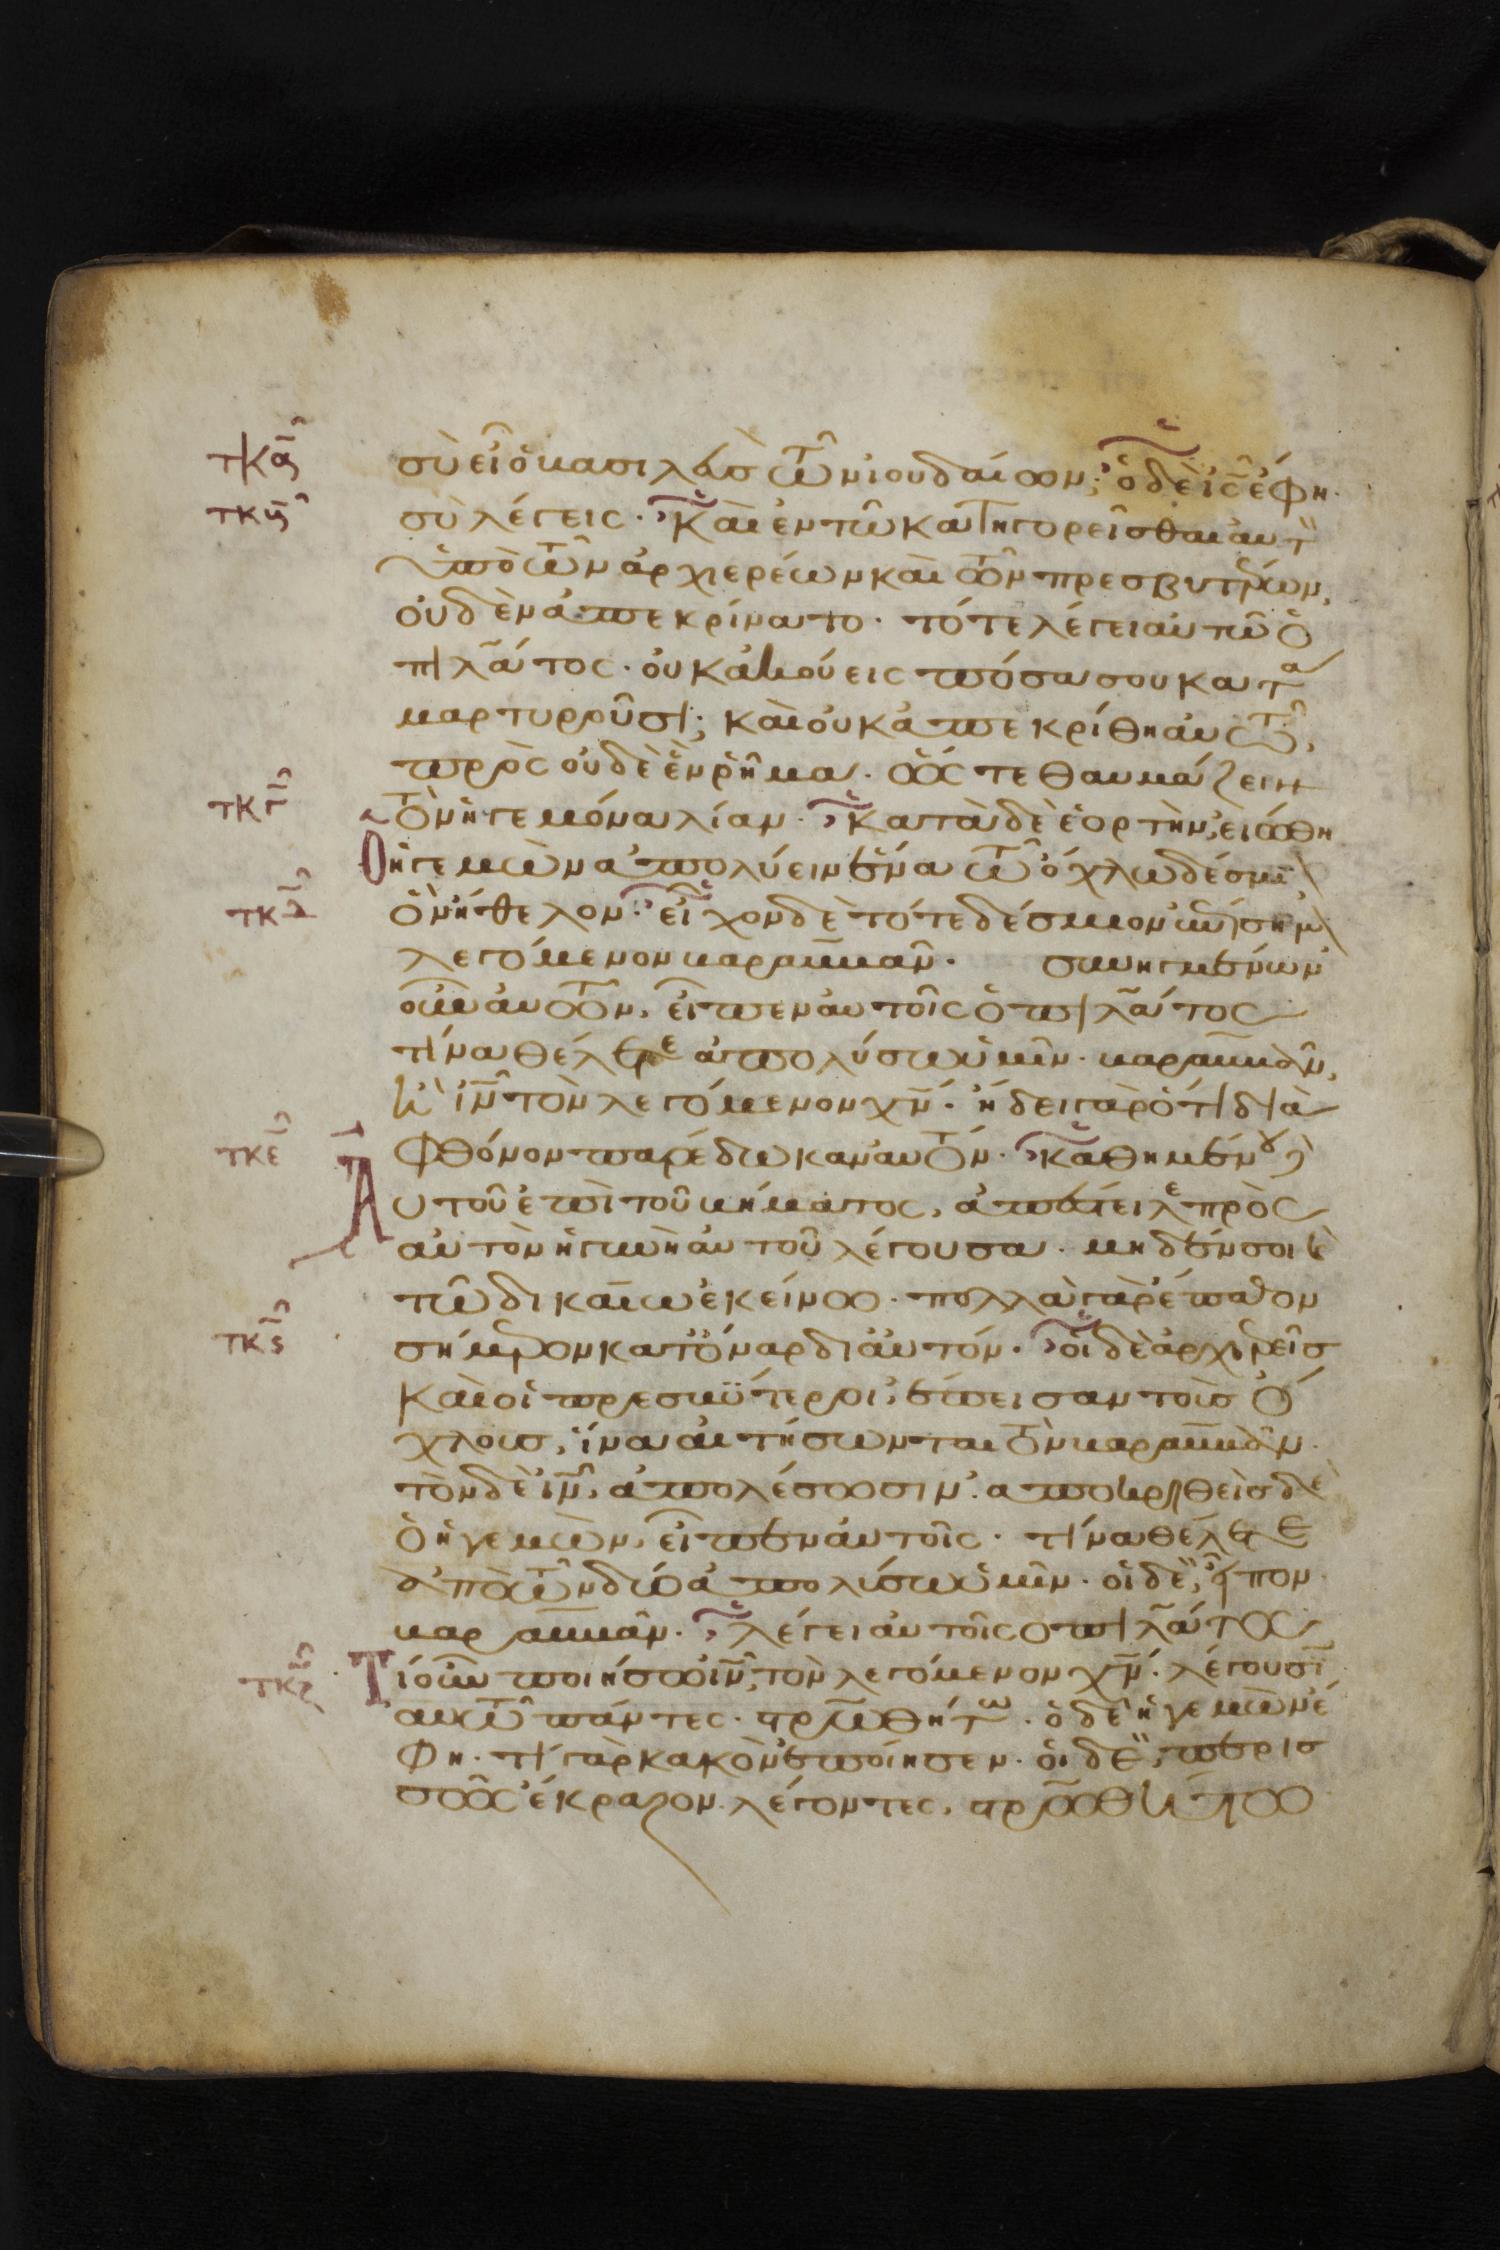 τκα σὺ εἶ ὁ βασιλεὺσ τῶν ἰουδαίων; ὁ δὲ ις ἔφη·
τκβ σὺ λέγεις· Καὶ ἐν τῶ κατηγορεῖσθαι αὐτὸ
ὑπὸ τῶν ἀρχιερέων καὶ τῶν πρεσβυτέρων,
οὐδὲν ἀπεκρίνατο· τότε λέγει αὐτῶ ὁ
πιλάτος· οὐκ ἀκούεις πόσα σου κατα
μαρτυροῦσι; καὶ οὐκ ἀπεκρίθη αὐτῶ,
πρὸς οὐδὲ ἓν ῥῆμα· ὥστε θαυμάζειν
τκγ τὸν ἡγεμόνα λίαν· Κατὰ δὲ ἑορτὴν, εἰώθη
Ὁ ἡγεμὼν ἀπολύειν ἕνα τῶ ὄχλω δέσμι
τκδ ὃν ἤθελον· εἶχον δὲ τότε δέσμιον ἐπίσημ
λεγόμενον βαραββᾶν· συνηγμένων
οὖν αὐτῶν, εἶπεν αὐτοῖς ὁ πιλάτος
τίνα θέλετε ἀπολύσω ὑμῖν· βαραββὰν,
ἢ ιν τὸν λεγόμενον χν· ἤδει γὰρ ὅτι διὰ
τκε φθόνον παρέδωκαν αὐτόν· Καθημένου δὲ
Αυτοῦ ἐπὶ τοῦ βήματος, ἀπέστειλε πρὸς
αὐτὸν ἡ γυνὴ αὐτοῦ λέγουσα· μηδέν σοι κὲ
τῶ δικαίω ἐκείνω· πολλὰ γὰρ ἔπαθον
τκς σήμερον κατόναρ δι αὐτόν· οἱ δὲ ἀρχιερεῖσ
Καὶ οἱ πρεσβύτεροι, ἔπεισαν τοὺσ ὄ
χλουσ, ἵνα αἰτήσωνται τὸν βαραββὰν·
τὸν δὲ ιν, ἀπολέσωσιν· ἀποκριθεὶσ δὲ
ὁ ἡγεμὼν, εἶπεν αὐτοῖς· τίνα θέλετε
ἀπὸ τῶν δύο ἀπολύσω ὑμῖν· οἱ δὲ, εἶπον·
βαραββᾶν· λέγει αὐτοῖς ὁ πιλάτος
τκζ Τί οὖν ποιήσω ιν, τὸν λεγόμενον χν· λέγουσι
αὐτῶ πάντες· στρωθήτω· ὁ δὲ ἡγεμὼν ἔ
φη· τί γὰρ κακὸν ἐποίησεν· οἱ δὲ, περισ
σῶς ἔκραζον λέγοντες, στρωθήτω